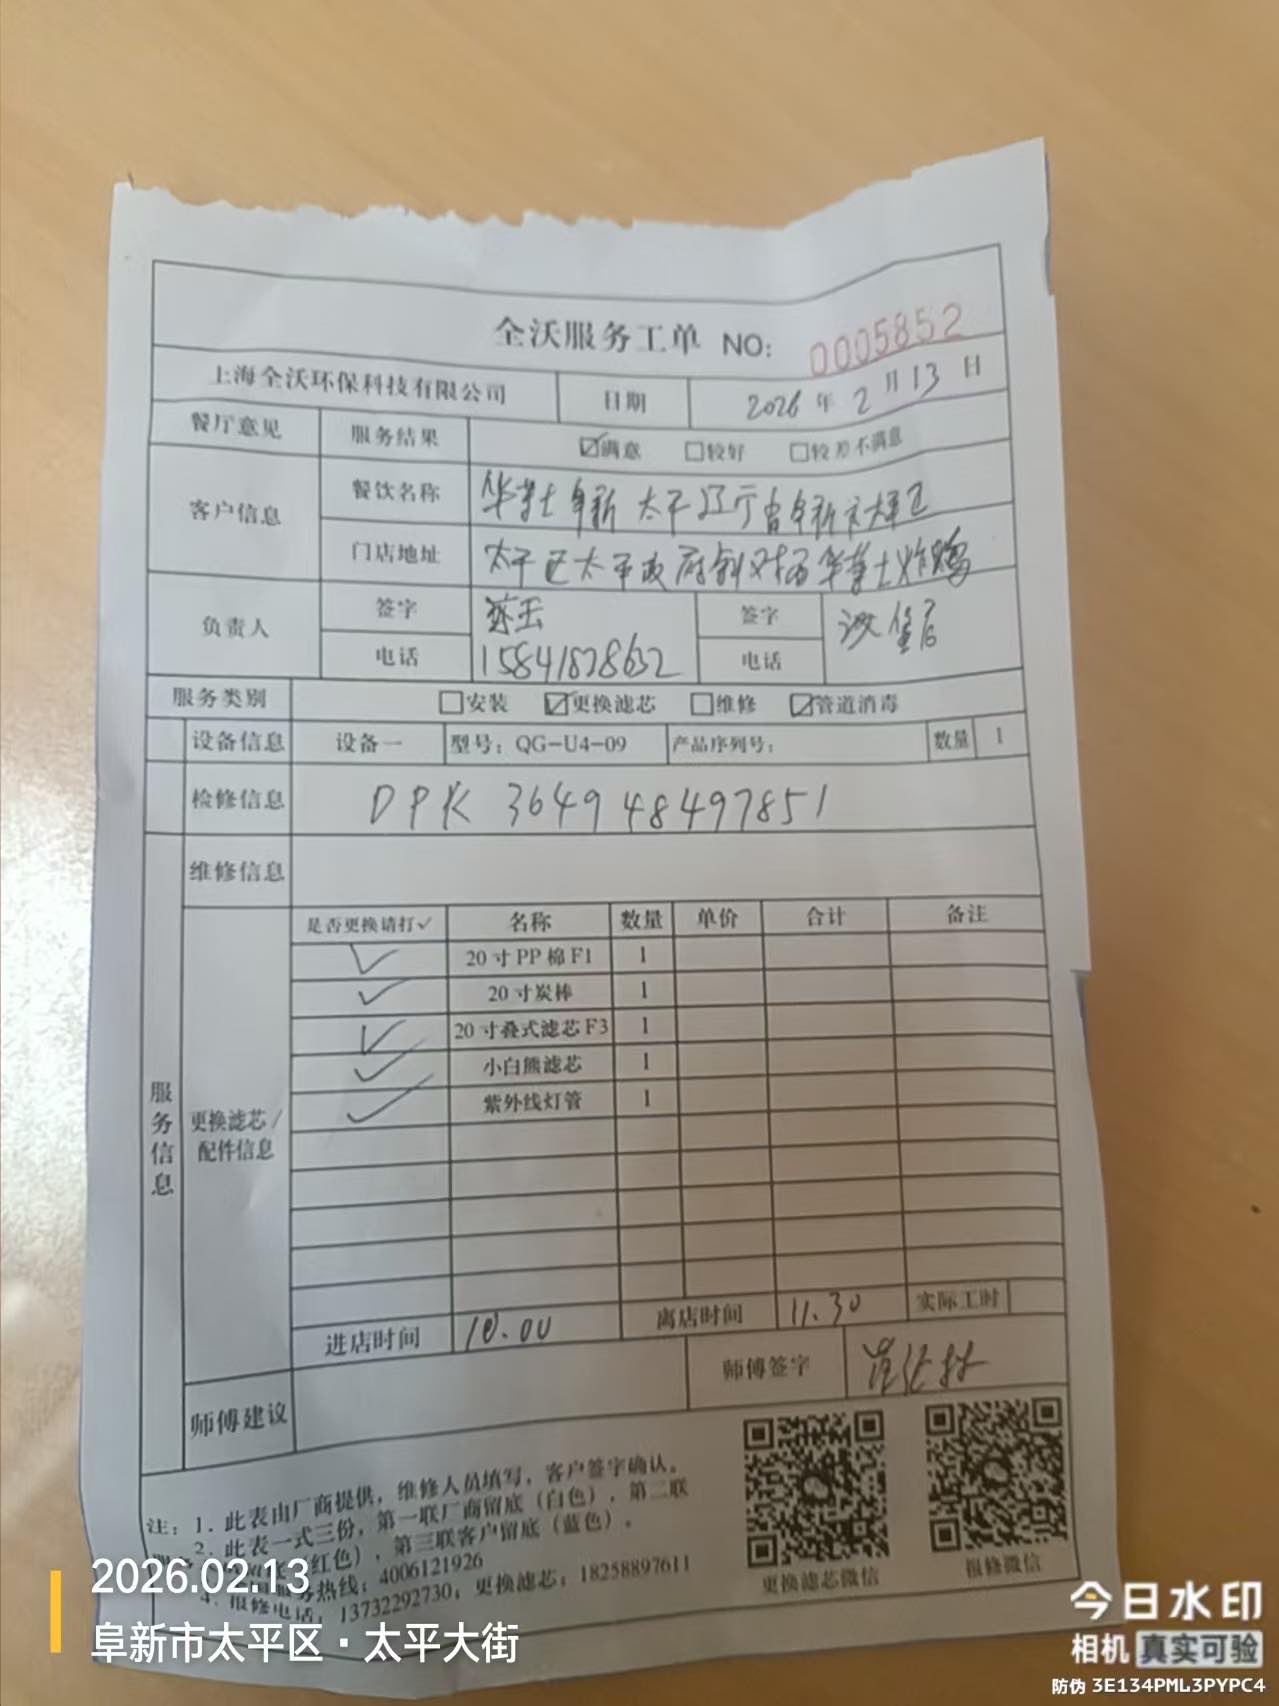 全沃服务工单 NO: 0005852
上海全沃环保科技有限公司 日期 2026年2月13日
餐厅意见 服务结果 ☑满意 □较好 □较差不满意
客户信息 餐饮名称 华莱士阜新太平辽宁省阜新市太平区
门店地址 太平区太平政府斜对面华莱士炸鸡
汉堡店
负责人 签字 签字
电话 15841828632 电话
服务类别 □安装 ☑更换滤芯 □维修 ☑管道消毒
设备信息 设备一 型号：QG-U4-09 产品序列号： 数量 1
检修信息 DPK 364948497851
维修信息
服务信息
更换滤芯/
配件信息
是否更换请打✓ 名称 数量 单价 合计 备注
✓ 20寸PP棉F1 1
✓ 20寸炭棒 1
✓ 20寸叠式滤芯F3 1
✓ 小白熊滤芯 1
✓ 紫外线灯管 1
进店时间 10.00 离店时间 11.30 实际工时
师傅建议 师傅签字
注：1. 此表由厂商提供，维修人员填写，客户签字确认。
2. 此表一式三份，第一联厂商留底（白色），第二联
红色），第三联客户留底（蓝色）。
服务热线：4006121926
4. 报修电话：13732292730；更换滤芯：18258897611
更换滤芯微信 报修微信
2026.02.13
阜新市太平区·太平大街
今日水印
相机 真实可验
防伪 3E134PML3PYPC4